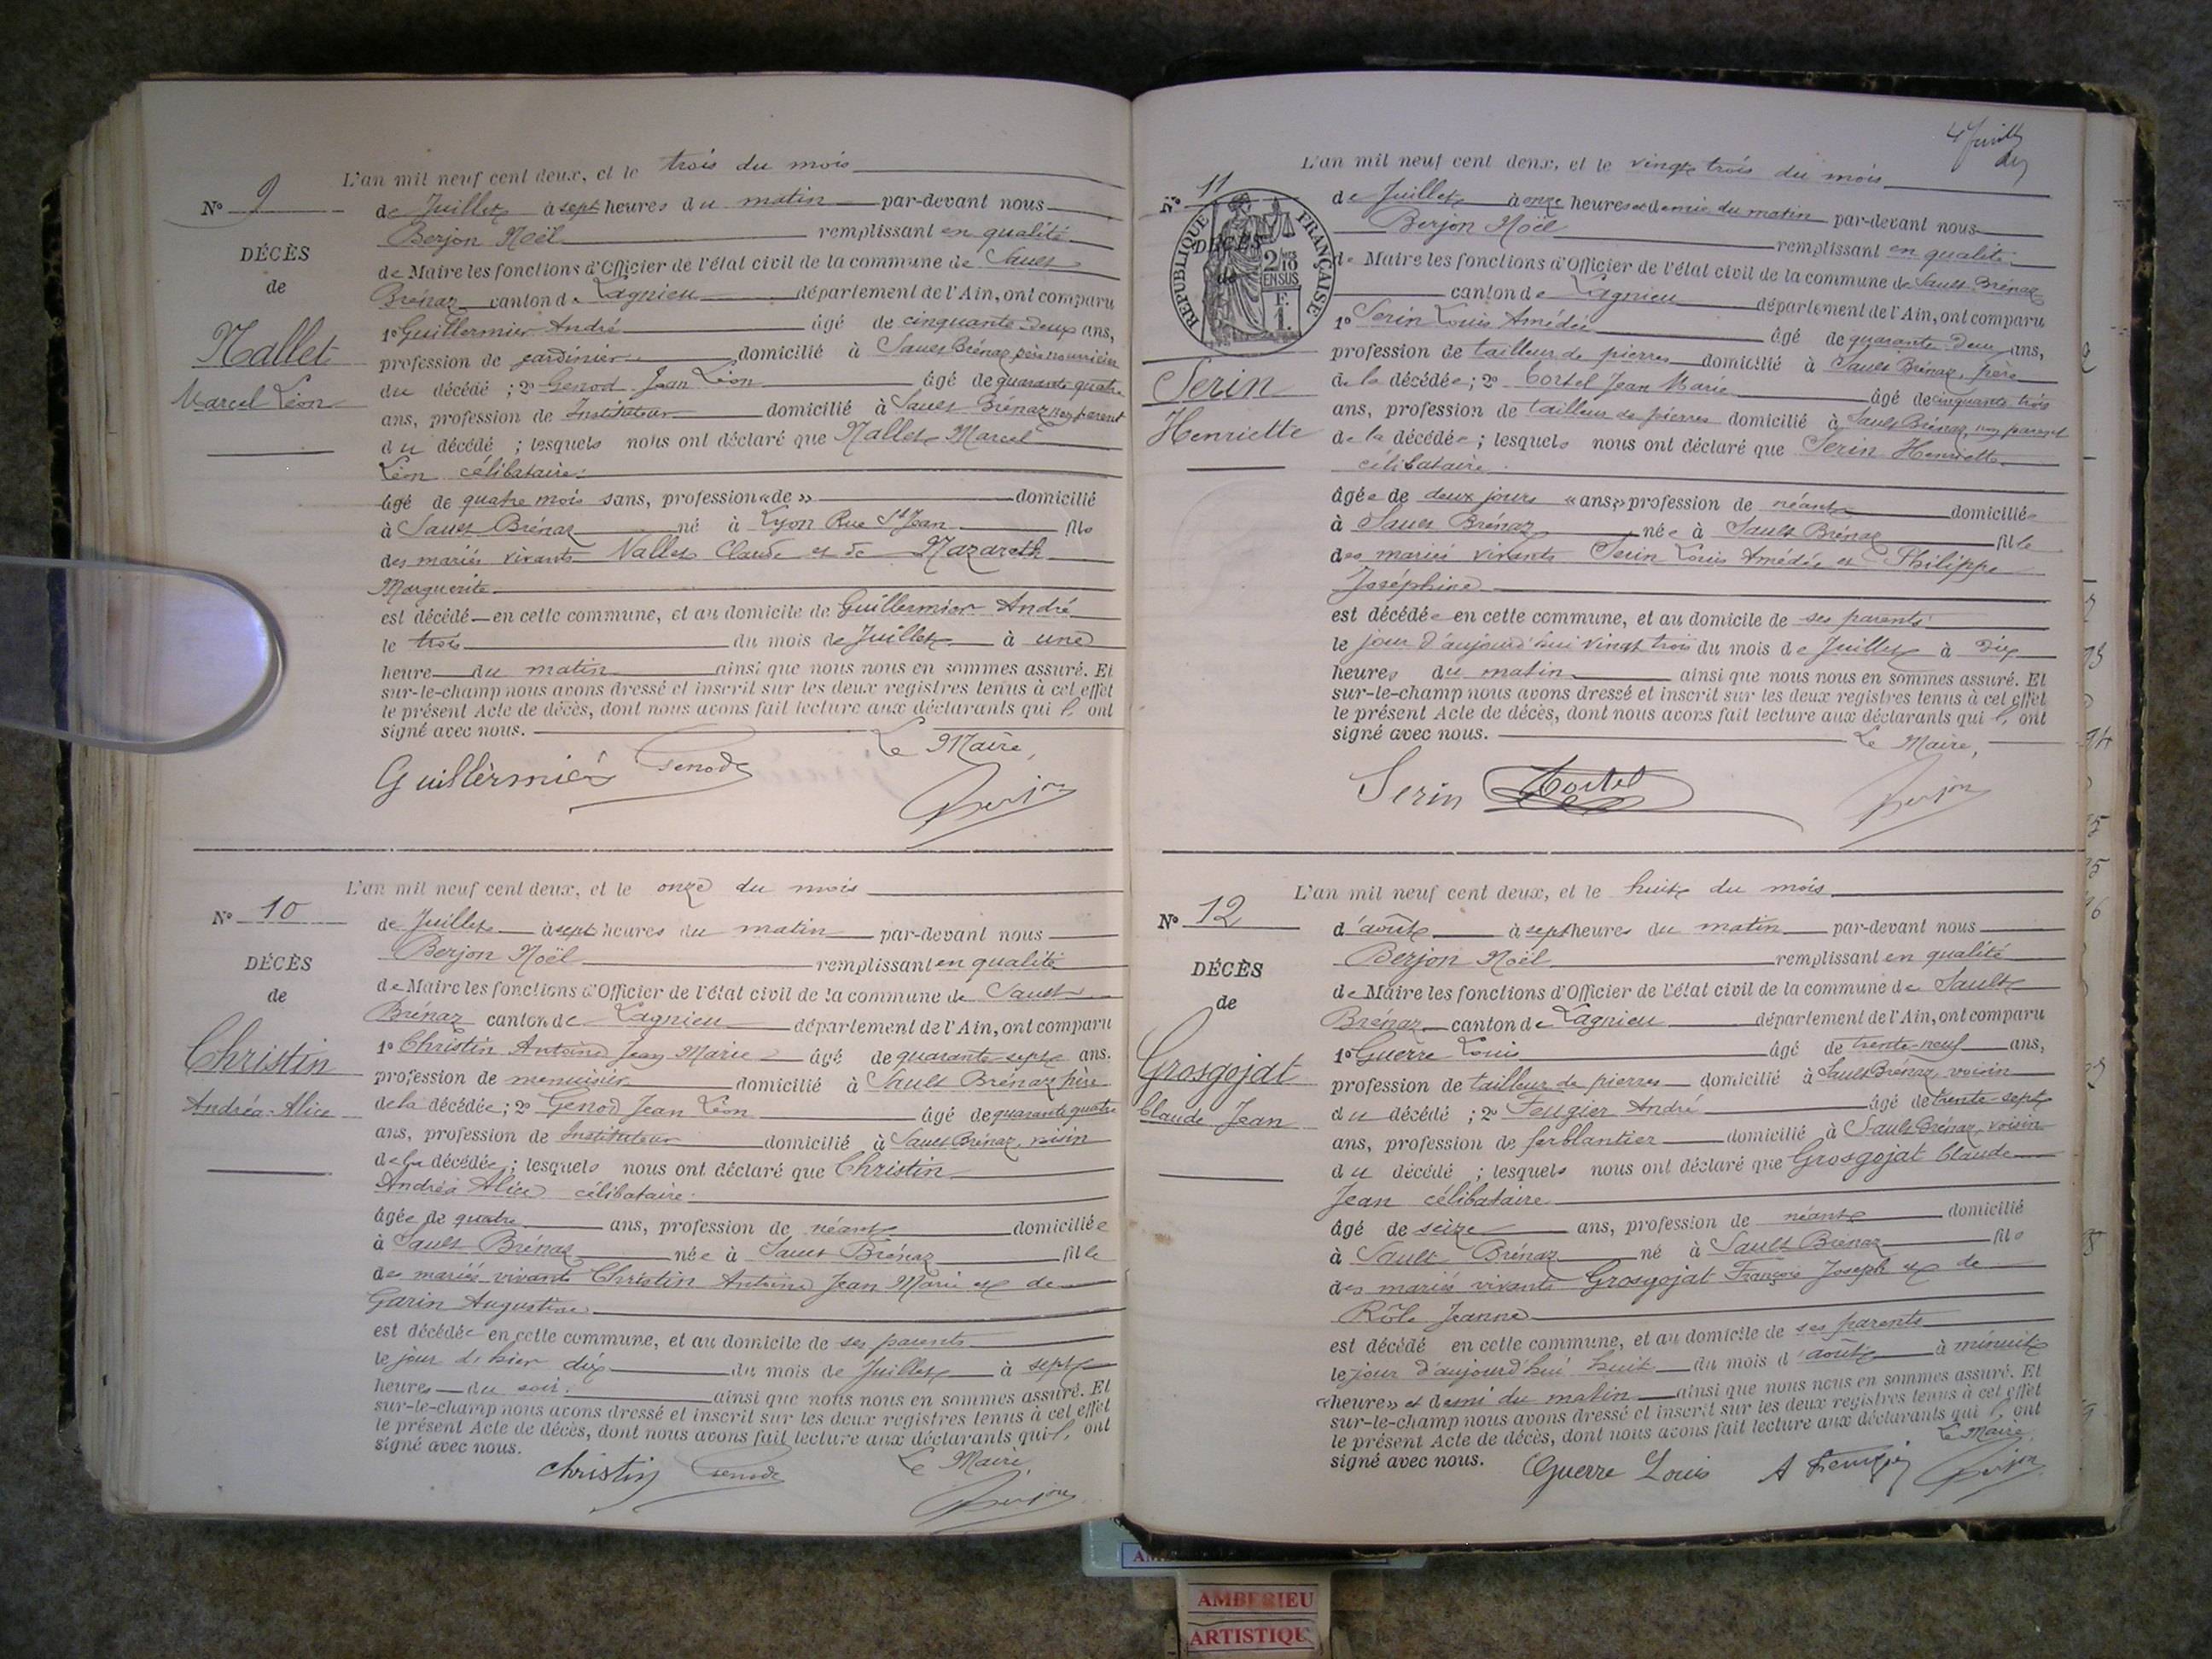 L'an mil neuf cent deux, et le trois du mois
N° 9
de Juillet à sept heures du matin par-devant nous
Berjon Noël remplissant en qualité
DÉCÈS
de Maire les fonctions d'Officier de l'état civil de la commune de Sault
de
Brénaz canton de Lagnieu département de l'Ain, ont comparu
1° Guillermier André âgé de cinquante-deux ans,
Nallet
profession de jardinier domicilié à Sault Brénaz, père nourricier
Marcel Léon
du décédé ; 2° Genod Jean Léon âgé de quarante quatre
ans, profession de Instituteur domicilié à Sault Brénaz, non parent
du décédé ; lesquels nous ont déclaré que Nallet Marcel
Léon célibataire
âgé de quatre mois sans, profession «de» domicilié
à Sault Brénaz né à Lyon Rue St Jean fils
des mariés vivants Nallet Claude et de Nazareth
Marguerite
est décédé en cette commune, et au domicile de Guillermier André
le trois du mois de Juillet à une
heure du matin ainsi que nous nous en sommes assuré. Et
sur-le-champ nous avons dressé et inscrit sur les deux registres tenus à cet effet
le présent Acte de décès, dont nous avons fait lecture aux déclarants qui l' ont
signé avec nous. Le Maire,
Guillermier Genod Berjon
L'an mil neuf cent deux, et le onze du mois
N° 10
de Juillet à sept heures du matin par-devant nous
Berjon Noël remplissant en qualité
DÉCÈS
de Maire les fonctions d'Officier de l'état civil de la commune de Sault
de
Brénaz canton de Lagnieu département de l'Ain, ont comparu
Christin
1° Christin Antoine Jean Marie âgé de quarante-sept ans.
profession de menuisier domicilié à Sault Brénaz père
Andréa-Alice
de la décédée ; 2° Genod Jean Léon âgé de quarante quatre
ans, profession de Instituteur domicilié à Sault Brénaz, voisin
de la décédée ; lesquels nous ont déclaré que Christin
Andréa Alice célibataire
âgée de quatre ans, profession de néant domiciliée
à Sault Brénaz née à Sault Brénaz fille
des mariés vivants Christin Antoine Jean Marie et de
Garin Augustine
est décédée en cette commune, et au domicile de ses parents
le jour d'hier dix du mois de Juillet à sept
heures du soir ainsi que nous nous en sommes assuré. Et
sur-le-champ nous avons dressé et inscrit sur les deux registres tenus à cet effet
le présent Acte de décès, dont nous avons fait lecture aux déclarants qui l' ont
signé avec nous. Le Maire,
Christin Genod Berjon
L'an mil neuf cent deux, et le vingt trois du mois
N° 11
de Juillet à onze heures et demie du matin par-devant nous
Berjon Noël remplissant en qualité
RÉPUBLIQUE FRANÇAISE
2/10 EN SUS
F. 1.
DÉCÈS
de
de Maire les fonctions d'Officier de l'état civil de la commune de Sault-Brénaz
canton de Lagnieu département de l'Ain, ont comparu
1° Serin Louis Amédée âgé de quarante-deux ans,
profession de tailleur de pierres domicilié à Sault Brénaz, père
Serin
Henriette
de la décédée ; 2° Tortel Jean Marie âgé de cinquante trois
ans, profession de tailleur de pierres domicilié à Sault Brénaz, non parent
de la décédée ; lesquels nous ont déclaré que Serin Henriette
célibataire
âgée de deux jours «ans» profession de néant domiciliée
à Sault Brénaz née à Sault Brénaz fille
des mariés vivants Serin Louis Amédée et Philippe
Joséphine
est décédée en cette commune, et au domicile de ses parents
le jour d'aujourd'hui vingt trois du mois de Juillet à dix
heures du matin ainsi que nous nous en sommes assuré. Et
sur-le-champ nous avons dressé et inscrit sur les deux registres tenus à cet effet
le présent Acte de décès, dont nous avons fait lecture aux déclarants qui l' ont
signé avec nous. Le Maire,
Serin Tortel Berjon
L'an mil neuf cent deux, et le huit du mois
N° 12
d'août à sept heures du matin par-devant nous
Berjon Noël remplissant en qualité
DÉCÈS
de Maire les fonctions d'Officier de l'état civil de la commune de Sault
de
Brénaz canton de Lagnieu département de l'Ain, ont comparu
1° Guerre Louis âgé de trente-neuf ans,
Grosgojat
profession de tailleur de pierres domicilié à Sault Brénaz, voisin
Claude Jean
du décédé ; 2° Feugier André âgé de trente-sept
ans, profession de ferblantier domicilié à Sault Brénaz, voisin
du décédé ; lesquels nous ont déclaré que Grosgojat Claude
Jean célibataire
âgé de seize ans, profession de néant domicilié
à Sault Brénaz né à Sault Brénaz fils
des mariés vivants Grosgojat François Joseph et de
Rôle Jeanne
est décédé en cette commune, et au domicile de ses parents
le jour d'aujourd'hui huit du mois d'août à minuit
«heure» et demi du matin ainsi que nous nous en sommes assuré. Et
sur-le-champ nous avons dressé et inscrit sur les deux registres tenus à cet effet
le présent Acte de décès, dont nous avons fait lecture aux déclarants qui l' ont
signé avec nous. Le Maire,
Guerre Louis A Feugier Berjon
AMBERIEU
ARTISTIQUE